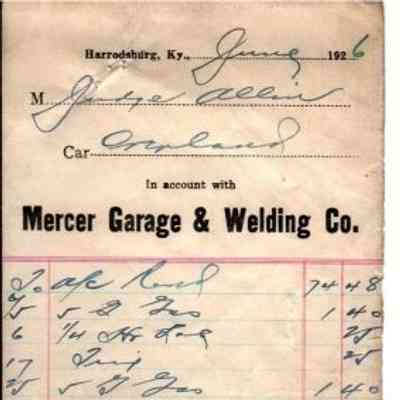 Harrodsburg, Ky., June 1926
M Judge Allin
Car Overland
In account with
Mercer Garage & Welding Co.
To a/c Rend 74 48
5 5 G Gas 1 40
6 1/4 25
17 25
25 5 G Gas 1 40